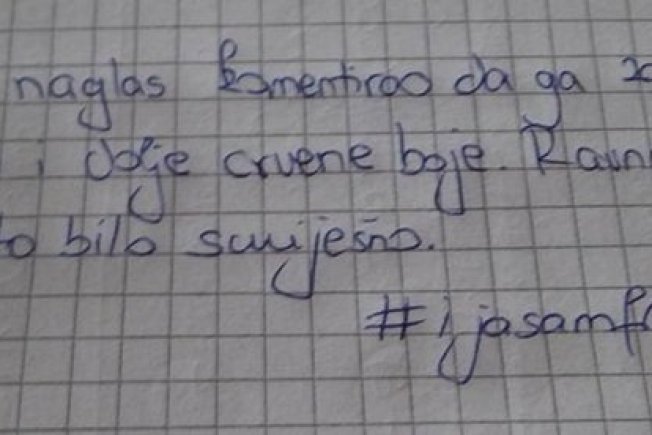 naglas komentirao da ga
i dolje crvene boje. Ravn
to bilo smiješno.
#ijasamf